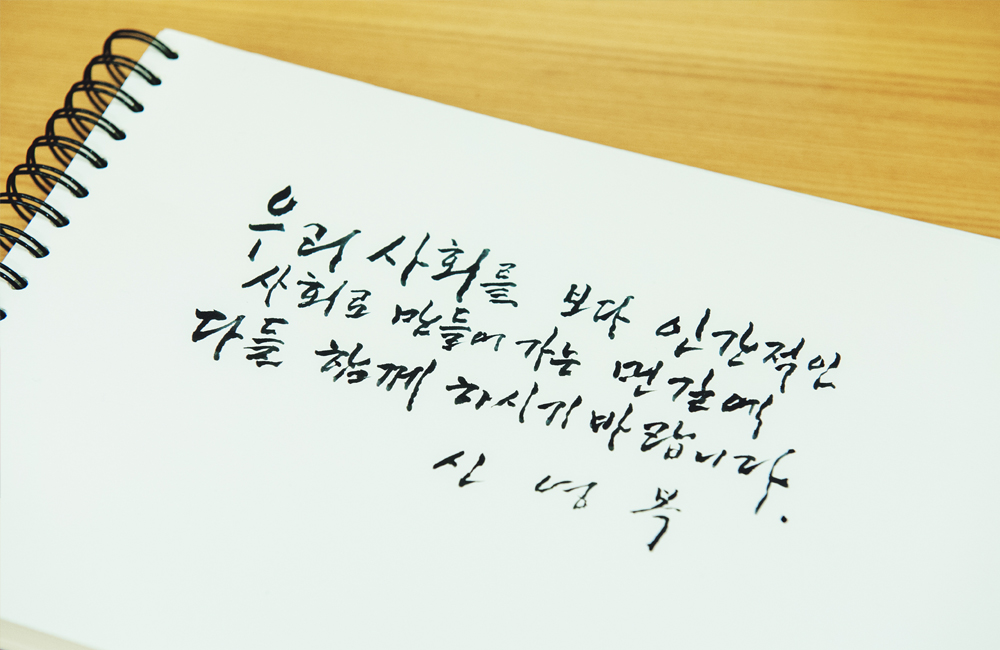 우리 사회를 보다 인간적인
사회로 만들어 가는 먼 길에
다들 함께 하시기 바랍니다.
신영복